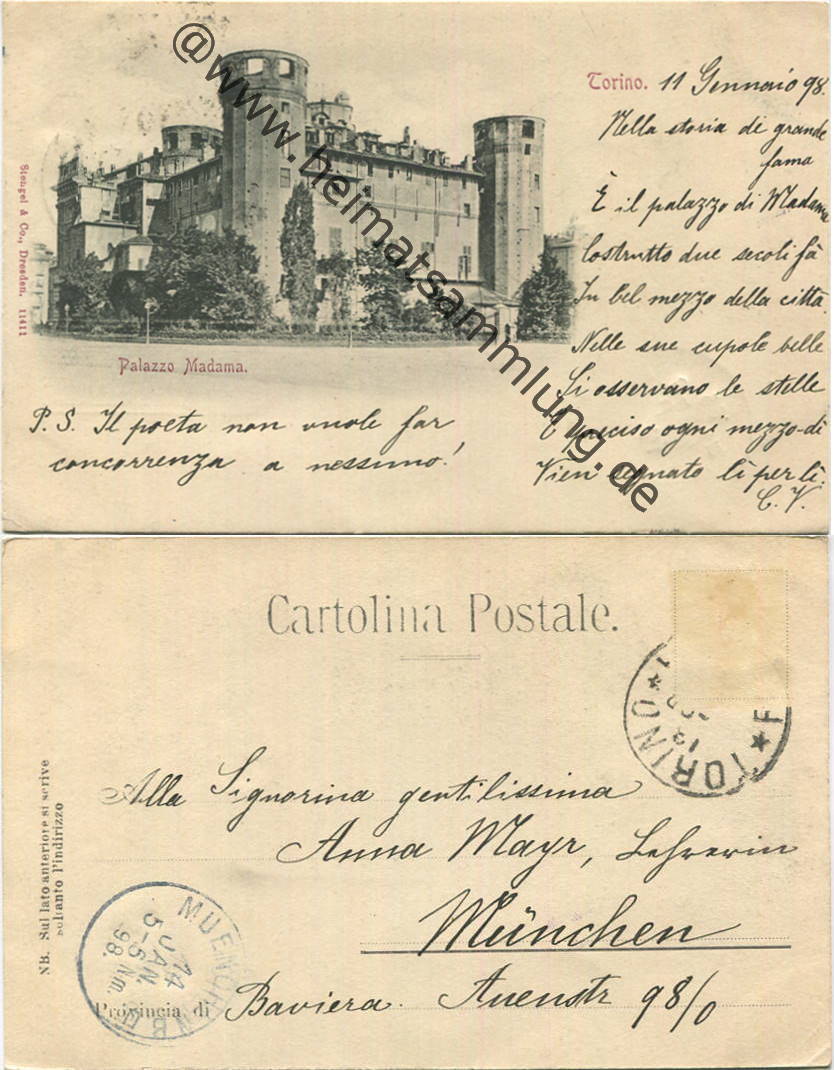 @www.heimatsammlung.de
Torino. 11 Gennaio 98.
Nella storia di grande
fama
È il palazzo di Madama
Costrutto due secoli fà
In bel mezzo della città.
Nelle sue cupole belle
Si osservano le stelle
E preciso ogni mezzo-dì
Vien segnato lì per lì.
C. V.
Stengel & Co., Dresden. 11411
Palazzo Madama.
P. S. Il poeta non vuole far
concorrenza a nessuno!
Cartolina Postale.
TORINO
Alla Signorina gentilissima
Anna Mayr, Lehrerin
München
Provincia di Baviera. Auenstr 98/0
NB. Sul lato anteriore si scrive
soltanto l'indirizzo
MUENCHEN
14
JAN.
5-6 Nm.
98.